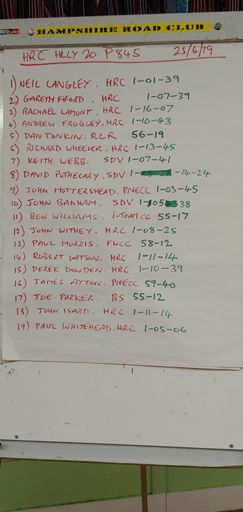 HAMPSHIRE ROAD CLUB
HRC HLLY 20 P845 25/6/19
1) NEIL LANGLEY. HRC 1-01-39
2) GARETH FIFORD. HRC 1-07-39
3) RACHAEL LAMONT. HRC 1-16-07
4) ANDREW FROGLEY. HRC 1-10-43
5) DAN TONKIN. RCR 56-19
6) RICHARD WHEELER. HRC 1-13-45
7) KEITH WEBB. SDV 1-07-41
8) DAVID POTHECARY. SDV 1- -14-24
9) JOHN MOTTERSHEAD. PNECC 1-03-45
10) JOHN BANHAM. SDV 1-05 38
11) BEN WILLIAMS. i-TEAM CC 55-17
12) JOHN WITHEY. HRC 1-08-25
13) PAUL MORRIS. FWCC 58-12
14) ROBERT WATSON. HRC 1-11-14
15) DEREK DOWDEN. HRC 1-10-39
16) JAMES AYTON. PNECC 59-40
17) JOE PARKER. BS 55-12
18) JOHN ISARD. HRC 1-11-14
19) PAUL WHITEHEAD. HRC 1-05-06